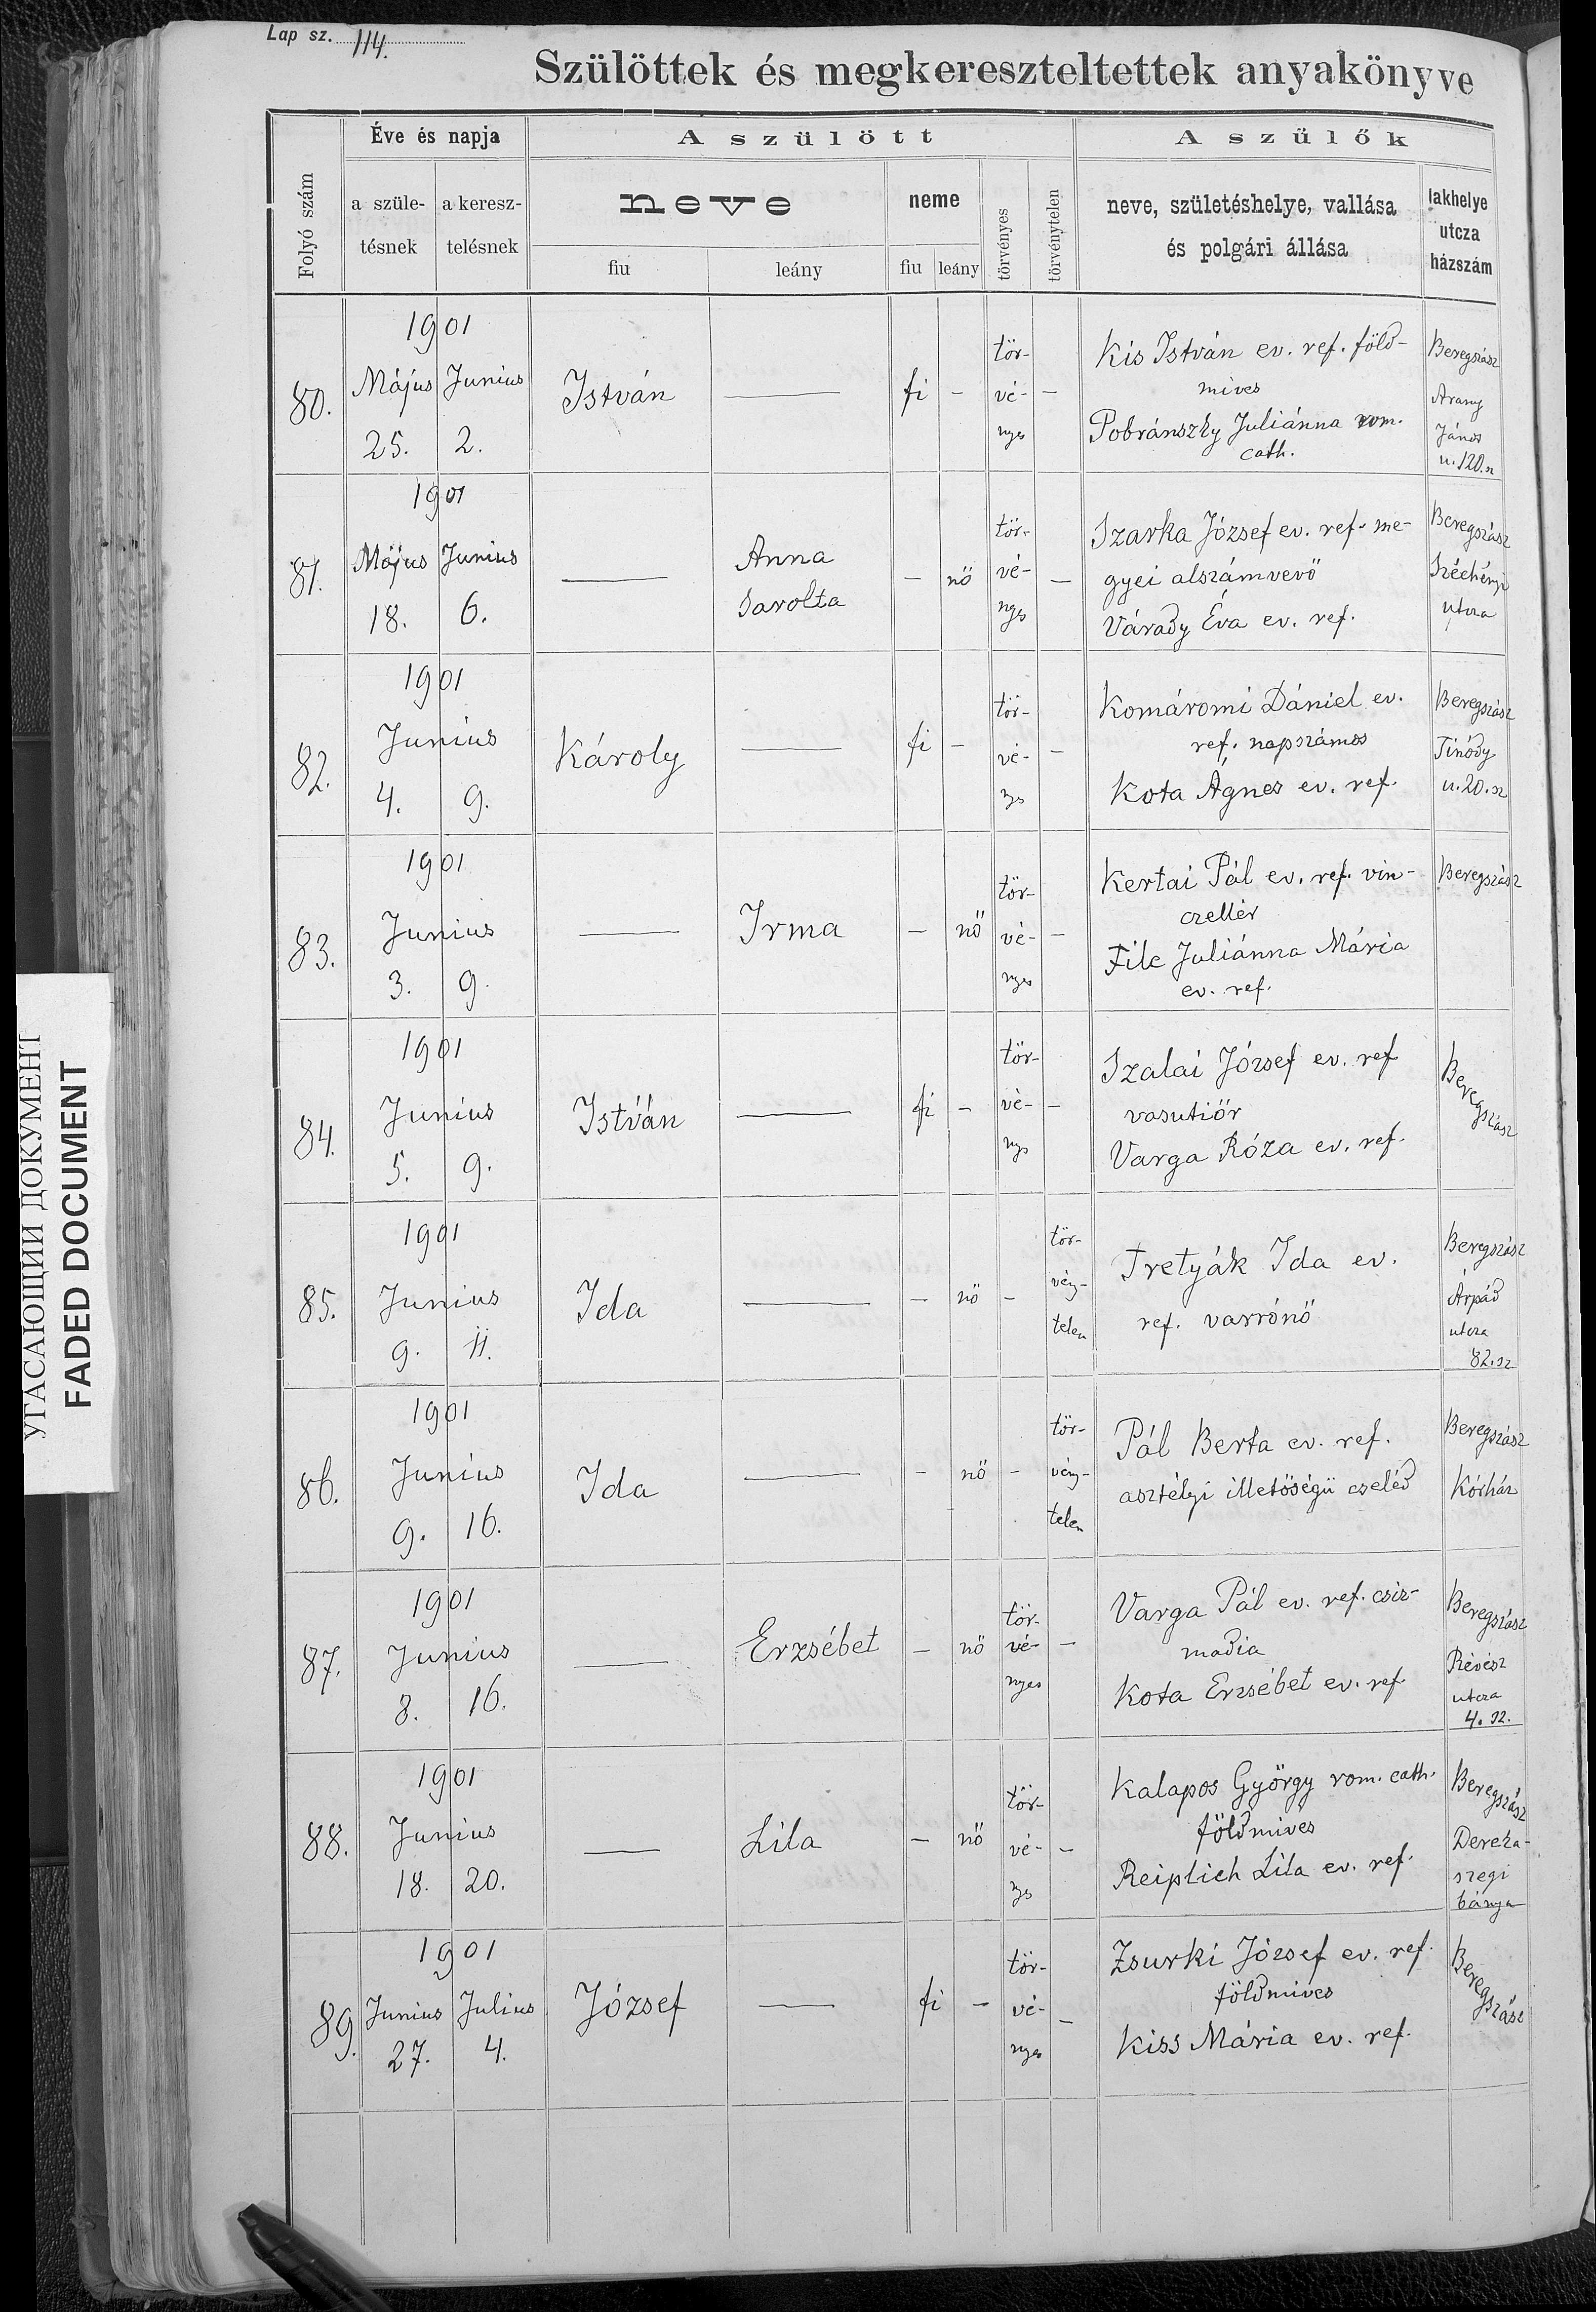 Lap sz. 114.
Szülöttek és megkereszteltettek anyakönyve
Folyó szám
Éve és napja
a születésnek
a keresztelésnek
A szülött
neve
fiu
leány
neme
fiu
leány
törvényes
törvénytelen
A szülők
neve, születéshelye, vallása
és polgári állása
lakhelye
utcza
házszám
80.
1901
Május
25.
Junius
2.
István
—
fi
-
tör-
vé-
nyes
—
Kis István ev. ref. föld-
mives
Pobránszky Juliánna rom.
cath.
Beregszász
Arany
János
u. 120. sz
81.
1901
Május
18.
Junius
6.
—
Anna
Sarolta
-
nö
tör-
vé-
nyes
—
Szarka József ev. ref. me-
gyei alszámvevö
Várady Éva ev. ref.
Beregszász
Széchényi
utcza
82.
1901
Junius
4.
9.
Károly
—
fi
-
tör-
vé-
nys
—
Komáromi Dániel ev.
ref. napszámos
Kota Ágnes ev. ref.
Beregszász
Tinódy
u. 20. sz
83.
1901
Junius
3.
9.
—
Irma
-
nö
tör-
vé-
nyes
—
Kertai Pál ev. ref. vin-
czellér
File Juliánna Mária
ev. ref.
Beregszász
84.
1901
Junius
5.
9.
István
—
fi
-
tör-
vé-
nys
—
Szalai József ev. ref
vasutiör
Varga Róza ev. ref.
Beregszász
85.
1901
Junius
9.
11.
Ida
—
-
nö
-
tör-
vény-
telen
Tretyák Ida ev.
ref. varrónö
Beregszász
Árpád
utcza
82. sz
86.
1901
Junius
9.
16.
Ida
—
-
nö
-
tör-
vény-
telen
Pál Berta ev. ref.
asztélyi illetöségü cseléd
Beregszász
Kórház
87.
1901
Junius
8.
16.
—
Erzsébet
-
nö
tör-
vé-
nyes
—
Varga Pál ev. ref. csiz-
madia
Kota Erzsébet ev. ref
Beregszász
Révész
utcza
4. sz.
88.
1901
Junius
18.
20.
—
Lila
-
nö
tör-
vé-
nys
—
Kalapos György rom. cath.
földmives
Reiplich Lila ev. ref.
Beregszász
Dereka-
szegi
bánya
89.
1901
Junius
27.
Julius
4.
József
—
fi
-
tör-
vé-
nyes
—
Zsurki József ev. ref.
földmives
Kiss Mária ev. ref.
Beregszász
УГАСАЮЩИИ ДОКУМЕНТ
FADED DOCUMENT